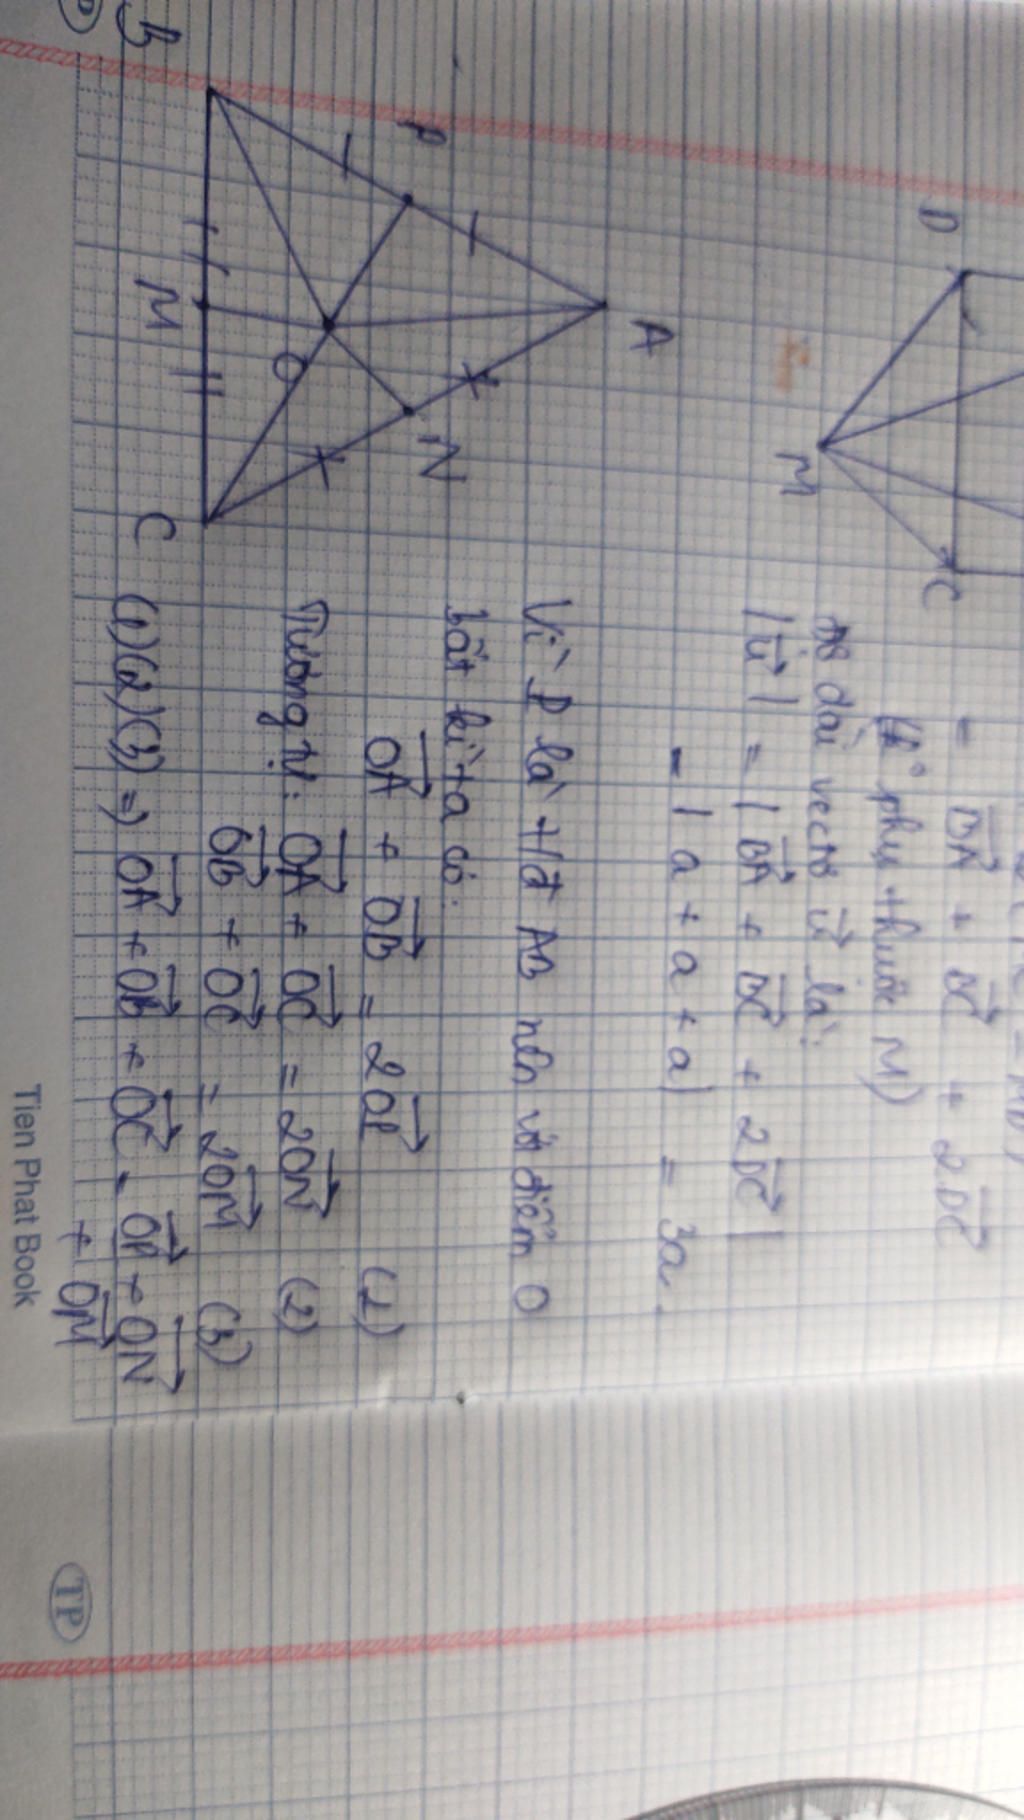 D
C
M
= \overrightarrow{BA} + \overrightarrow{DC} + 2\overrightarrow{DC}
phụ thuộc M)
độ dài vectơ \overrightarrow{u} là:
|\overrightarrow{u}| = |\overrightarrow{BA} + \overrightarrow{DC} + 2\overrightarrow{DC}|
= |a + a + a| = 3a.
A
P
N
O
B
M
C
Vì P là t/đ AB nên với điểm O
bất kì ta có:
\overrightarrow{OA} + \overrightarrow{OB} = 2\overrightarrow{OP} (1)
Tương tự: \overrightarrow{OA} + \overrightarrow{OC} = 2\overrightarrow{ON} (2)
\overrightarrow{OB} + \overrightarrow{OC} = 2\overrightarrow{OM} (3)
(1)(2)(3) => \overrightarrow{OA} + \overrightarrow{OB} + \overrightarrow{OC} = \overrightarrow{OP} + \overrightarrow{ON}
+ \overrightarrow{OM}
Tien Phat Book
TP